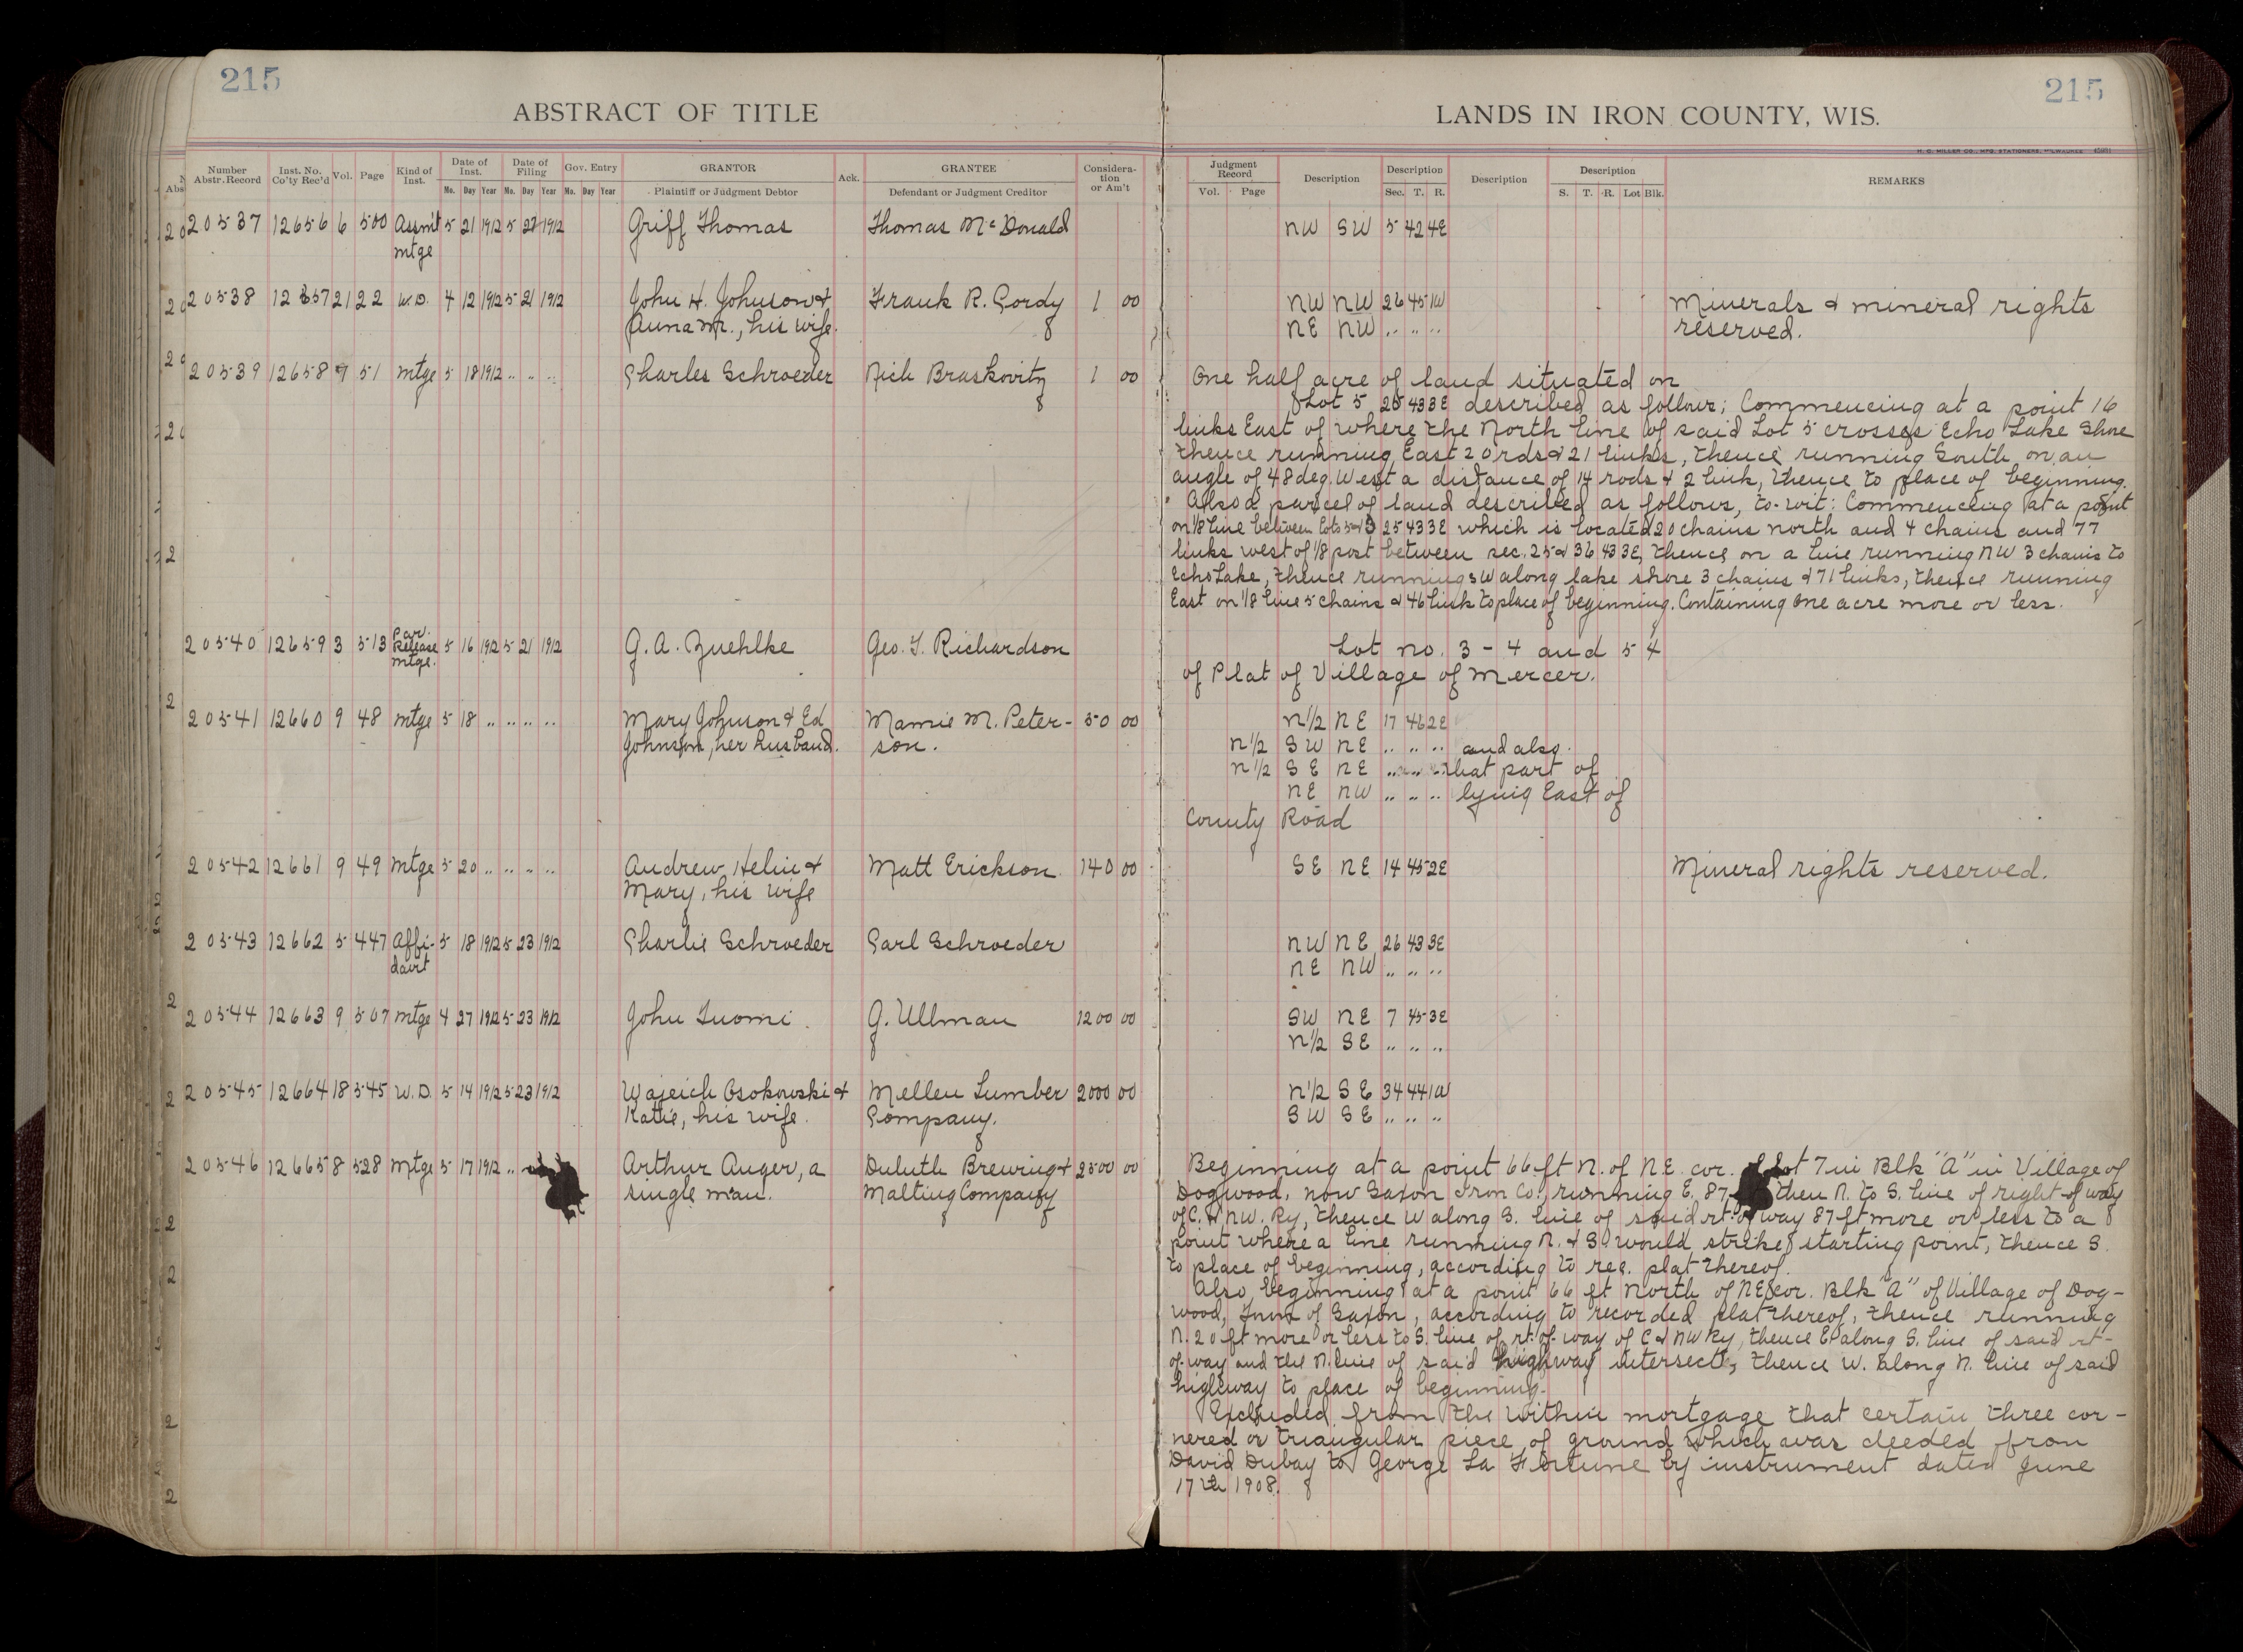 215
215
ABSTRACT OF TITLE
LANDS IN IRON COUNTY, WIS.
H. C. MILLER CO., MFG. STATIONERS, MILWAUKEE
Number Abstr. Record Inst. No. Co'ty Rec'd Vol. Page Kind of Inst. Date of Inst. Mo. Day Year Date of Filing Mo. Day Year Gov. Entry Mo. Day Year GRANTOR Plaintiff or Judgment Debtor Ack. GRANTEE Defendant or Judgment Creditor Consideration or Am't
Judgment Record Vol. Page Description Description Sec. T. R. Description Description S. T. R. Lot Blk. REMARKS
20537 12656 6 500 Assm't 5 21 1912 5 21 1912 Griff Thomas Thomas McDonald NW SW 5 42 4E
mtge
20538 12657 21 22 W.D. 4 12 1912 5 21 1912 John H. Johnson & Frank R. Gordy 1 00 NW NW 26 45 1W Minerals & mineral rights
Anna M., his wife. NE NW .. .. .. reserved.
20539 12658 9 51 mtge 5 18 1912 .. .. .. Charles Schroeder Nich Braskovitz 1 00 One half acre of land situated on
Lot 5 25 43 3E described as follows; Commencing at a point 16
links East of where the North line of said Lot 5 crosses Echo Lake Shore
thence running East 20 rds & 21 links, thence running South on an
angle of 48 deg. West a distance of 14 rods & 2 link, thence to place of beginning.
Also a parcel of land described as follows, to-wit: Commencing at a point
on 1/8 line between Lots 5 & 25 43 3E which is located 20 chains north and 4 chains and 77
links west of 1/8 post between sec. 25 & 36 43 3E, thence on a line running NW 3 chains to
Echo Lake, thence running SW along lake shore 3 chains & 71 links, thence running
East on 1/8 line 5 chains & 46 link to place of beginning. Containing one acre more or less.
20540 12659 3 513 Par. Release mtge. 5 16 1912 5 21 1912 G. A. Zuehlke Geo. T. Richardson Lot no. 3 - 4 and 54
of Plat of Village of Mercer.
20541 12660 9 48 mtge 5 18 .. .. .. .. Mary Johnson & Ed Mamie M. Peter- 50 00 N1/2 NE 17 46 2E
Johnson, her husband. son. N1/2 SW NE .. .. .. and also
N1/2 SE NE .. .. .. that part of
NE NW .. .. .. lying East of
County Road
20542 12661 9 49 mtge 5 20 .. .. .. .. Andrew Helin & Matt Erickson 140 00 SE NE 14 45 2E Mineral rights reserved.
Mary, his wife
20543 12662 5 447 Affi- 5 18 1912 5 23 1912 Charlie Schroeder Carl Schroeder NW NE 26 43 3E
davit NE NW .. .. ..
20544 12663 9 507 mtge 4 27 1912 5 23 1912 John Tuomi. G. Ullman 1200 00 SW NE 7 45 3E
N1/2 SE .. .. ..
20545 12664 18 545 W.D. 5 14 1912 5 23 1912 Wajeich Osokowski & Mellen Lumber 2000 00 N1/2 SE 34 44 1W
Katie, his wife. Company. SW SE .. .. ..
20546 12665 8 528 Mtge 5 17 1912 .. Arthur Auger, a Duluth Brewing & 2500 00 Beginning at a point 66 ft N. of N.E. cor. of Lot 7 in Blk "A" in Village of
single man. Malting Company Dogwood, now Saxon Iron Co., running E. 87 then N. to S. line of right-of-way
of C. & NW. Ry, thence W along S. line of said rt. of way 87 ft more or less to a
point where a line running N. & S. would strike starting point, thence S.
to place of beginning, according to rec. plat thereof.
Also, beginning at a point 66 ft North of NE cor. Blk "A" of Village of Dog-
wood, Town of Saxon, according to recorded plat thereof, thence running
N. 20 ft more or less to S. line of rt. of way of C & NW Ry, thence E. along S. line of said rt-
of-way and the N. line of said highway intersects, thence W. along N. line of said
highway to place of beginning.
Excluded from the within mortgage that certain three cor-
nered or triangular piece of ground which was deeded from
David Dubay to George La Fortune by instrument dated June
17th 1908.